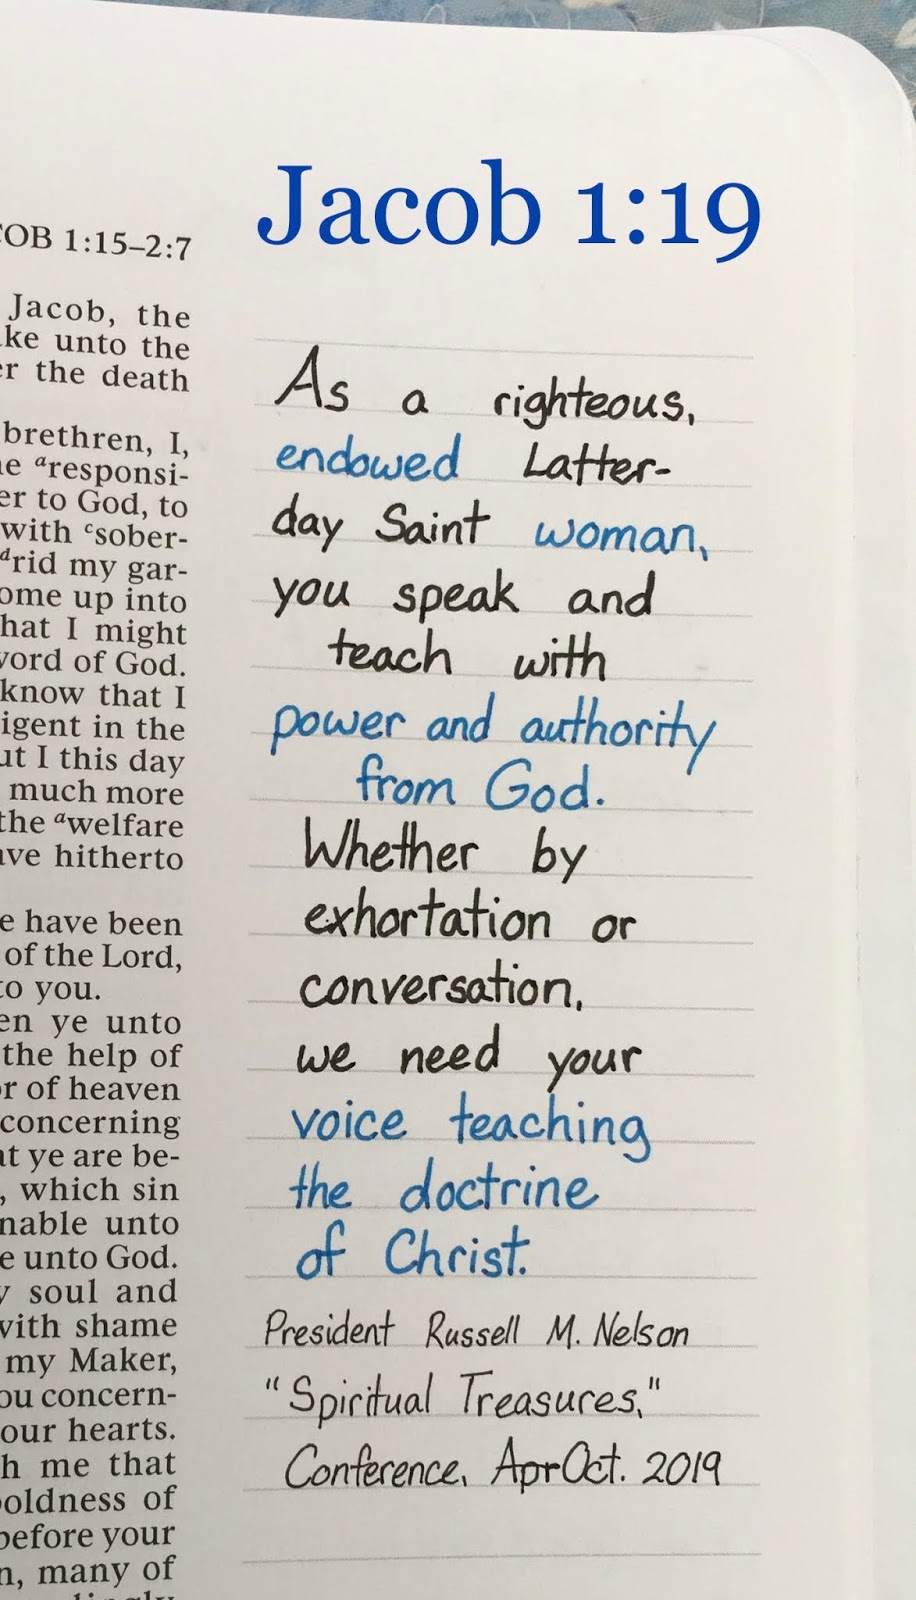 Jacob 1:19
OB 1:15–2:7
Jacob, the
ke unto the
r the death
brethren, I,
e ᵃresponsi-
er to God, to
with ᶜsober-
ᵈrid my gar-
ome up into
hat I might
word of God.
know that I
igent in the
ut I this day
much more
the ᵃwelfare
ave hitherto
e have been
of the Lord,
to you.
en ye unto
the help of
or of heaven
concerning
at ye are be-
, which sin
nable unto
e unto God.
y soul and
with shame
my Maker,
ou concern-
our hearts.
h me that
boldness of
before your
n, many of
As a righteous,
endowed Latter-
day Saint woman,
you speak and
teach with
power and authority
from God.
Whether by
exhortation or
conversation,
we need your
voice teaching
the doctrine
of Christ.
President Russell M. Nelson
"Spiritual Treasures,"
Conference, Apr Oct. 2019